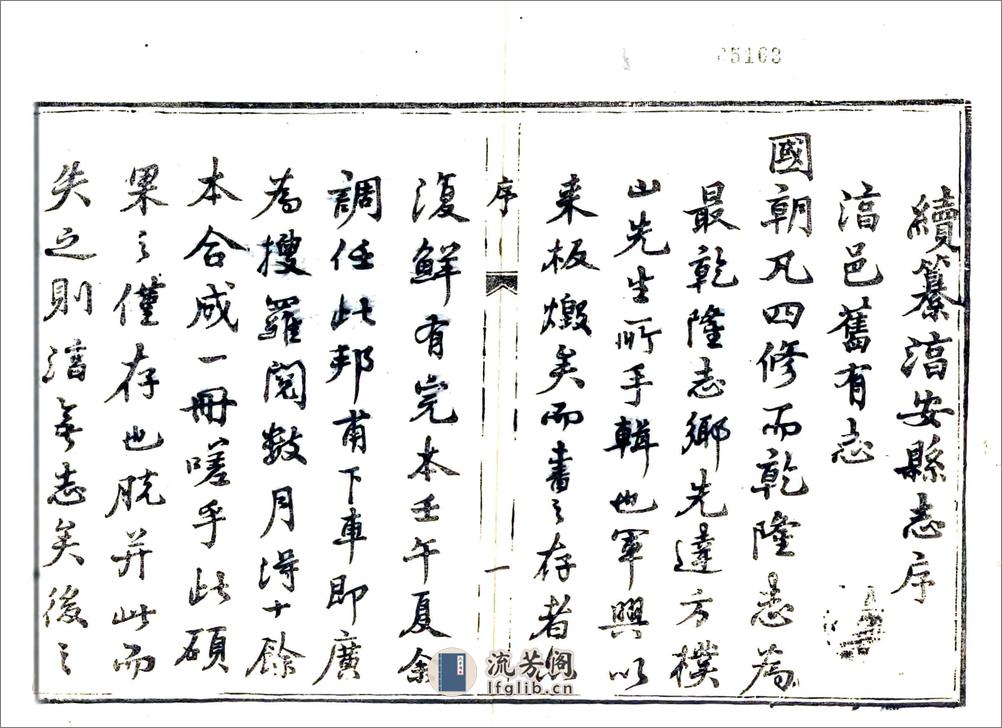 續纂淳安縣志序
淳邑舊有志
國朝凡四修而乾隆志為
最乾隆志鄉先達方樸
山先生所手輯也軍興以
來板燬矣而書之存者
序
一
復鮮有完本壬午夏余
調任此邦甫下車即廣
為搜羅閱數月得十餘
本合成一冊嗟乎此碩
果之僅存也脫并此而
失之則淳無志矣後之
5163
流芳阁
lfglib.cn